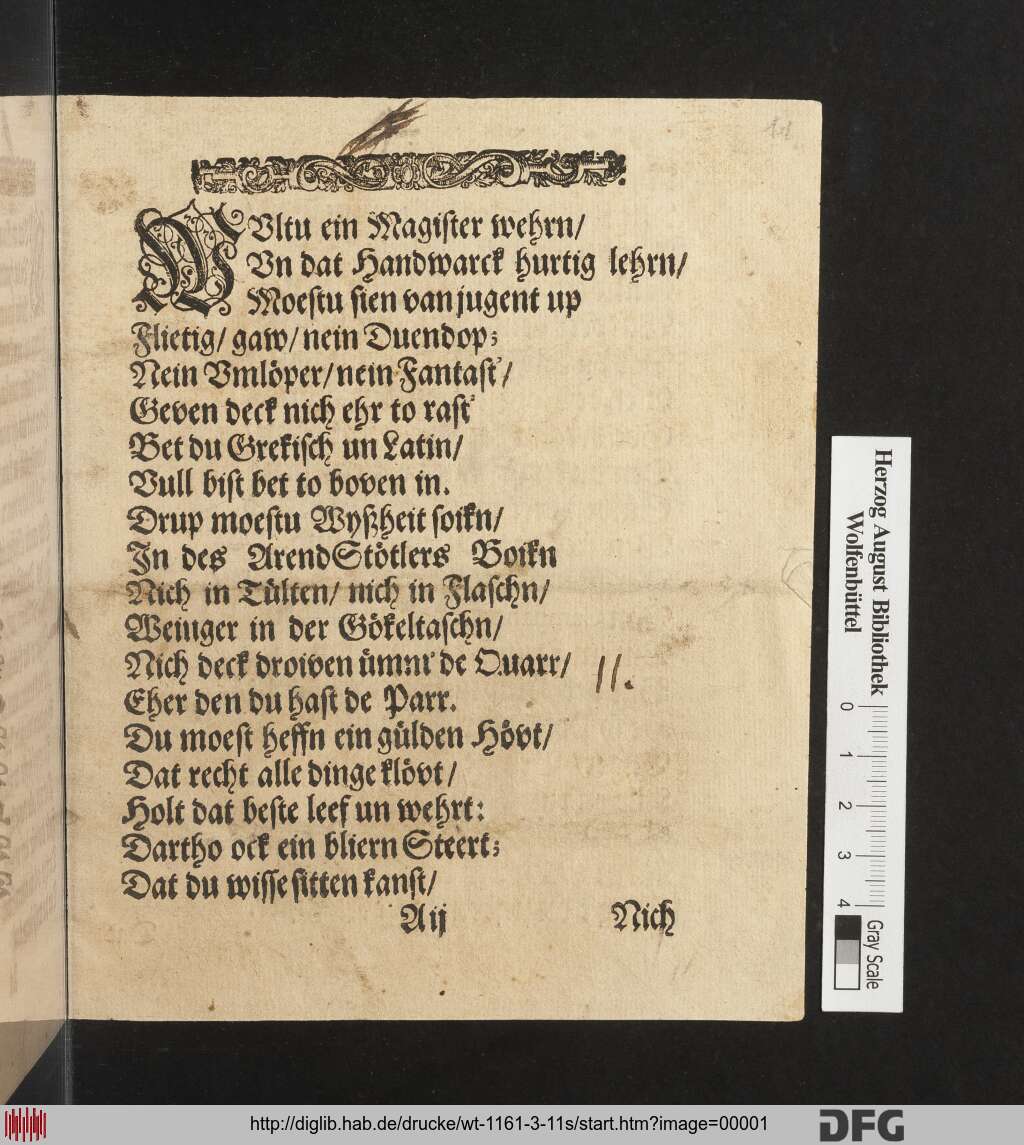 WVltu ein Magister wehrn/
Vn dat Handwarck hurtig lehrn/
Moestu sien van jugent up
Flietig/ gaw/ nein Duendop;
Nein Vmlöper/ nein Fantast/
Geven deck nich ehr to rast
Bet du Grekisch un Latin/
Vull bist bet to boven in.
Drup moestu Wyßheit soikn/
In des ArendStötlers Boikn
Nich in Tülten/ nich in Flaschn/
Weiniger in der Gökeltaschn/
Nich deck droiven ümm' de Quarr/
Eher den du hast de Parr.
Du moest heffn ein gülden Hövt/
Dat recht alle dinge klövt/
Holt dat beste leef un wehrt:
Dartho ock ein bliern Steert;
Dat du wisse sitten kanst/
Aij Nich
11.
Herzog August Bibliothek
Wolfenbüttel
0 1 2 3 4
Gray Scale
http://diglib.hab.de/drucke/wt-1161-3-11s/start.htm?image=00001
DFG